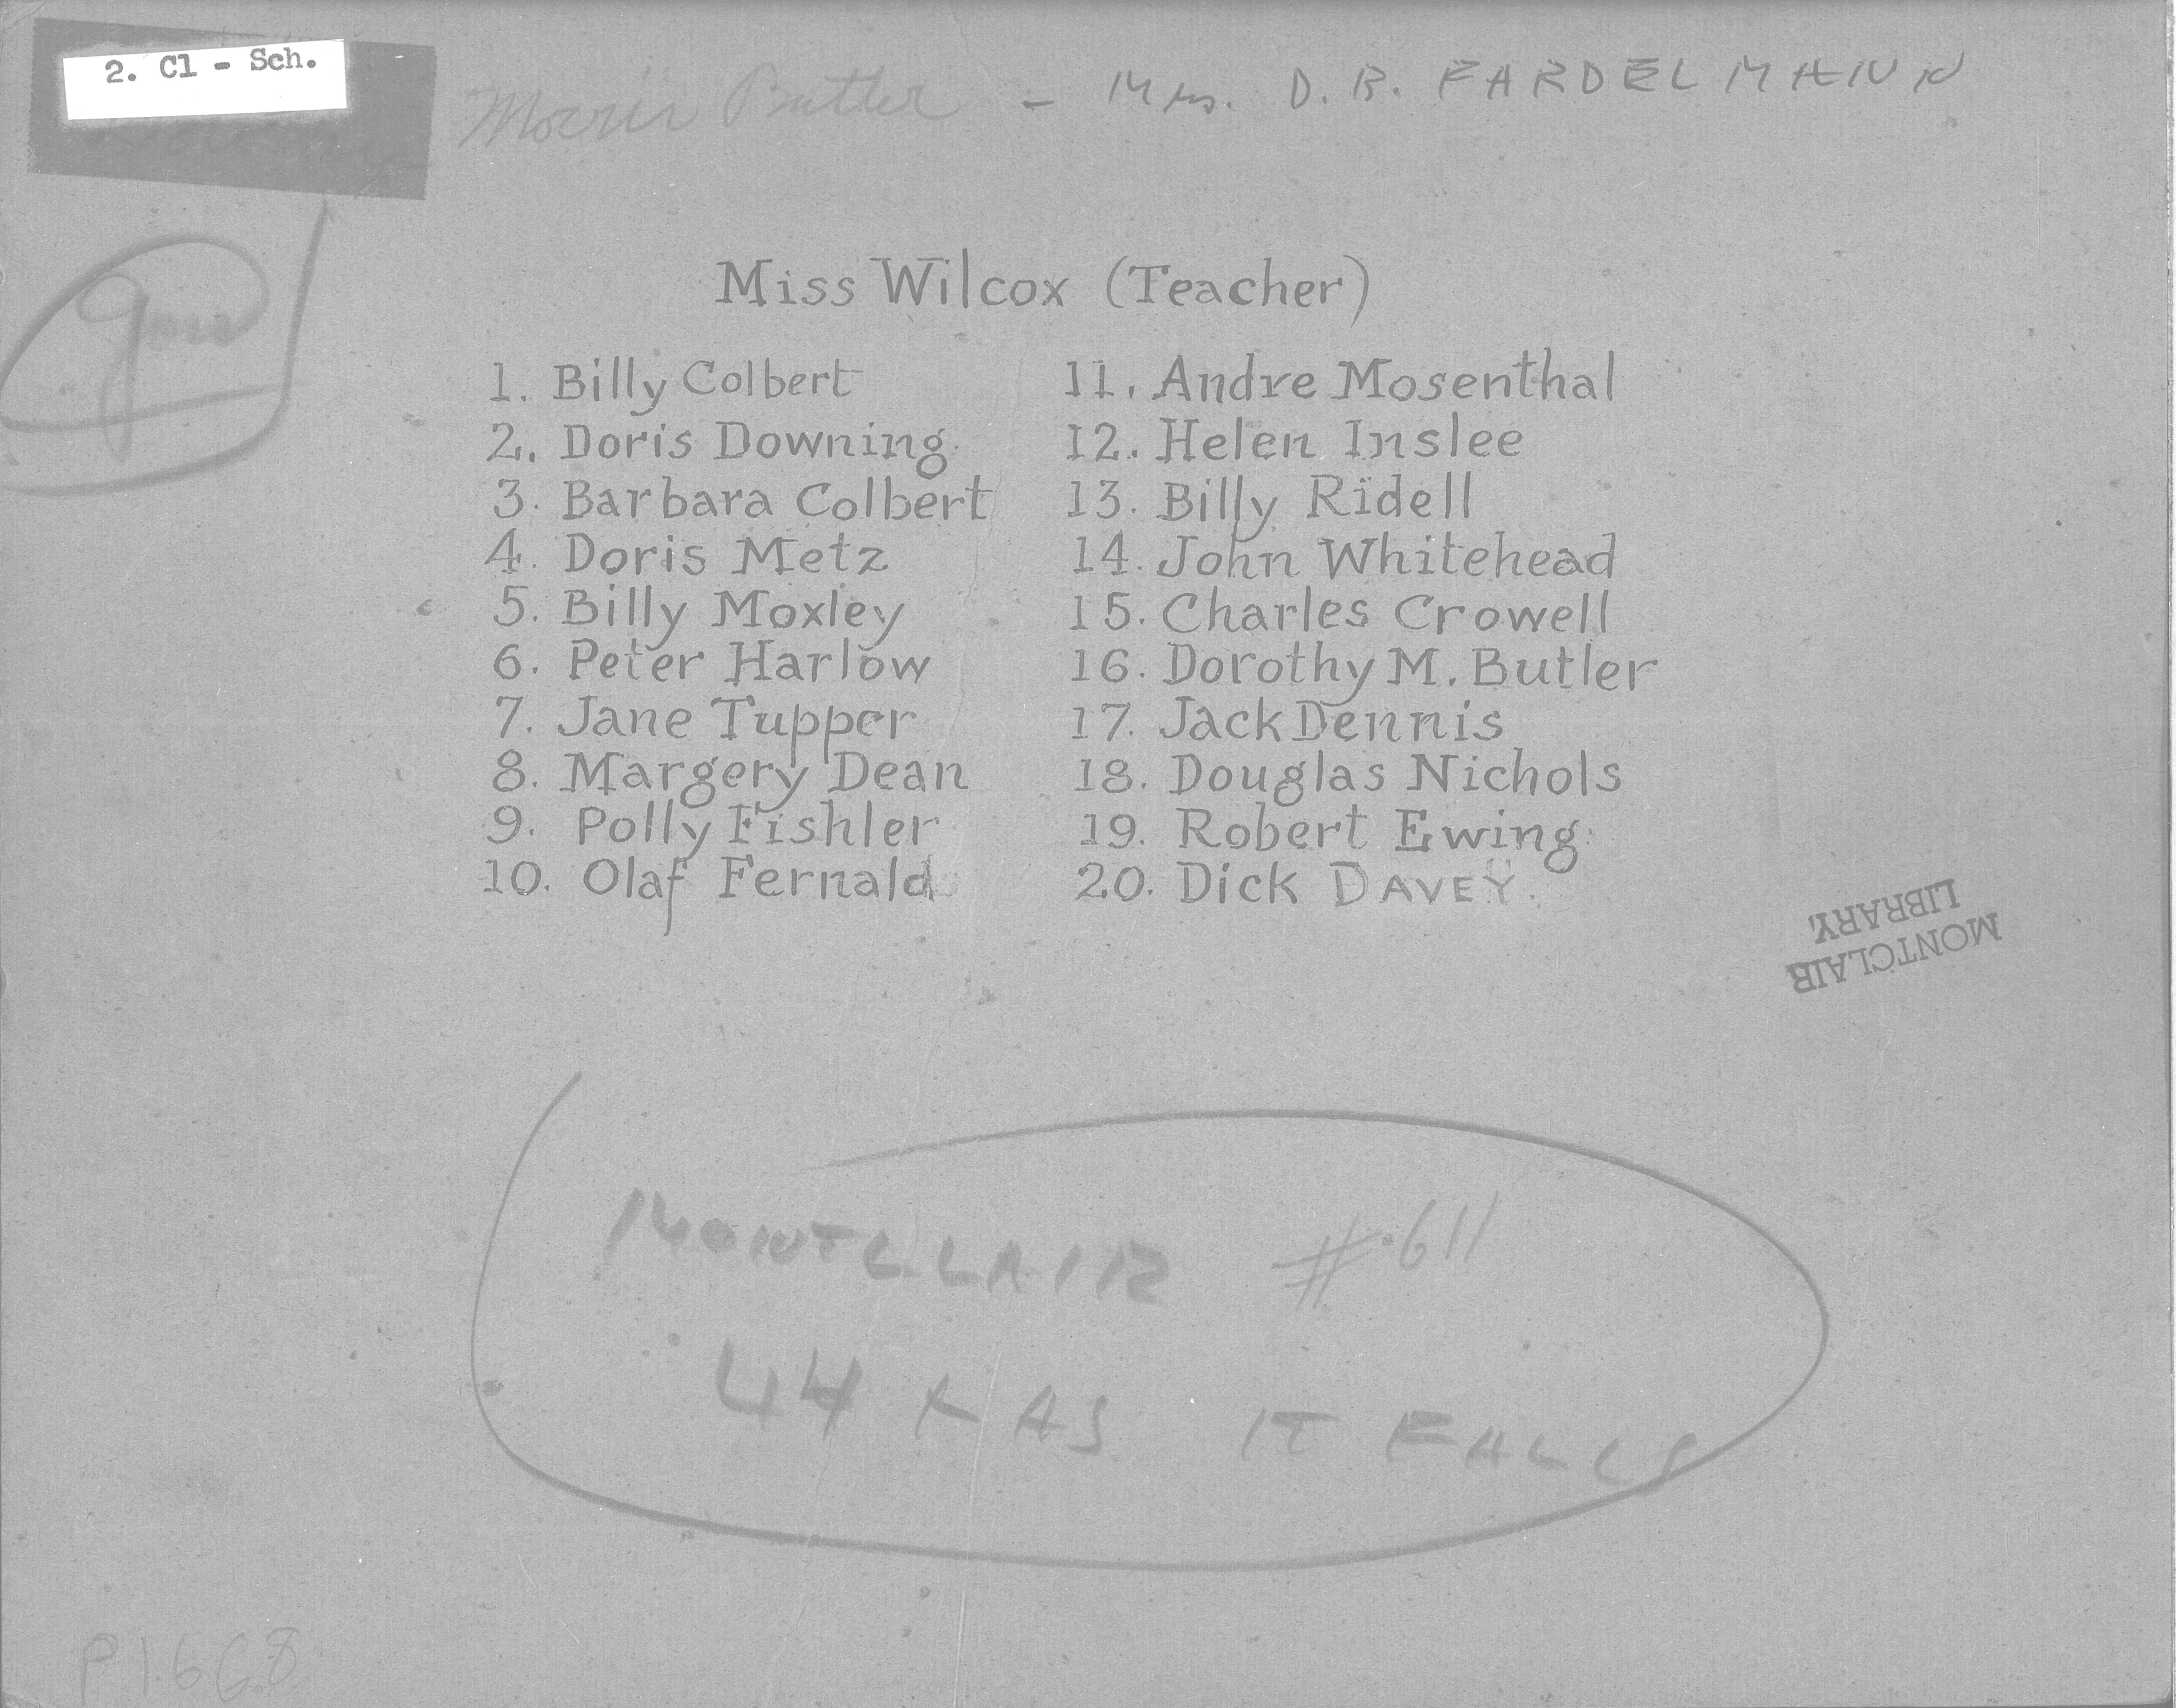 2. Cl - Sch.
Butler - Mrs. D. B. FARDELMANN
Miss Wilcox (Teacher)
1. Billy Colbert
2. Doris Downing
3. Barbara Colbert
4. Doris Metz
5. Billy Moxley
6. Peter Harlow
7. Jane Tupper
8. Margery Dean
9. Polly Fishler
10. Olaf Fernald
11. Andre Mosenthal
12. Helen Inslee
13. Billy Ridell
14. John Whitehead
15. Charles Crowell
16. Dorothy M. Butler
17. Jack Dennis
18. Douglas Nichols
19. Robert Ewing
20. Dick DAVEY
MONTCLAIR
LIBRARY.
MONTCLAIR #611
44 X AS IT FALLS
P1668